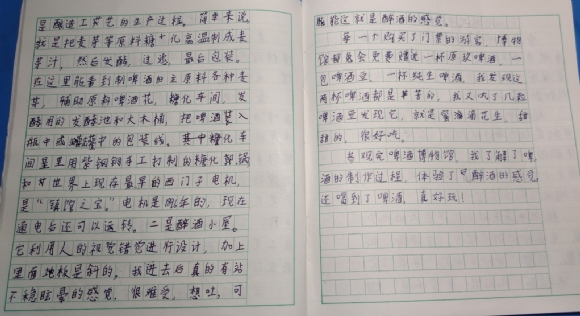 是酿造工厂艺的生产过程。简单来说
就是把麦芽等原料糖十化高温制成麦
芽汁，然后发酵，过滤，最后包装。
在这里能看到制啤酒的主原料各种麦
芽，辅助原料啤酒花，糖化车间，发
酵用的发酵池和大木桶，把啤酒装入
瓶中或罐中的包装线。其中糖化车
间里里用紫铜手工打制的糖化锅
和世界上现存最早的西门子电机，
是“镇馆之宝”。电机是1896年的，现在
通电后还可以运转。二是醉酒小屋。
它利用人的视觉错觉进行设计，加上
里面地板是斜的。我进去后真的有站
不稳眩晕的感觉，很难受，想吐，可
能这就是醉酒的感觉。
每一个购买了门票的游客，博物
馆都会免费赠送一杯原浆啤酒，一
包啤酒豆，一杯纯生啤酒。我发现这
两杯啤酒都是苦的，我又吃了几粒
啤酒豆发现它，就是蜜油花生，甜
甜的，很好吃。
参观完啤酒博物馆，我了解了啤
酒的制作过程，体验了醉酒的感觉
还喝到了啤酒，真好玩！